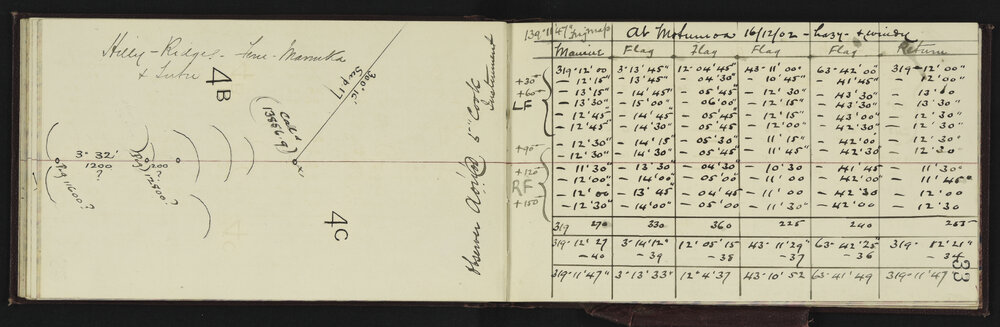 Hilly - Ridges - Fern - Manuka
& Tutu
4B
300° 16'
Sup 17
Cook's
(13856.9)
3° 32'
1200
?
1200
Rg 11600?
Rg 12800?
4C
Observer
5" Cook
Instrument
139°-11'47" Trig map
At Motumoa 16/12/02 - hazy - & windy
Maniri Flag Flag Flag Flag Return
319-12'00 3-13'45" 12-04'45" 43-11'00" 63-42'00" 319-12'00"
+30 - 12'15" - 13'45" - 04'30" - 10'45" - 41'45" - 12'00"
+60 - 13'15" - 14'45" - 05'45" - 12'30" - 43'30" - 13'00
LF - 13'30" - 15'00" - 06'00" - 12'15" - 43'30" - 13'30"
- 12'45" - 14'45" - 05'45" - 12'15" - 43'00" - 12'30"
- 12'45" - 14'30" - 05'45" - 12'00" - 42'30" - 12'30"
- 12'30" - 14'15" - 05'30" - 11'15" - 42'00" - 12'30
+90 - 12'30" - 14'30" - 05'45" - 11'45" - 42'30" - 12'30
+120 - 11'30" - 13'30" - 04'30" - 10'30 - 41'45 - 11'30"
RF - 12'00" - 14'00" - 05'00" - 11'00 - 42'00" - 11'45"
- 12'00" - 13'45" - 04'45" - 11'00 - 42'30 - 12'00
+150 - 12'30" - 14'00" - 05'00 - 11'30" - 42'30 - 12'30
319 270 330 360 225 240 255
319-12'27 3-14'12" 12 05'15" 43-11'29" 63-42'25" 319- 12'21"
-40 -39 -38 -37 -36 -34
319-11'47" 3-13'33" 12°4'37 43-10'52 63-41'49 319-11'47
33